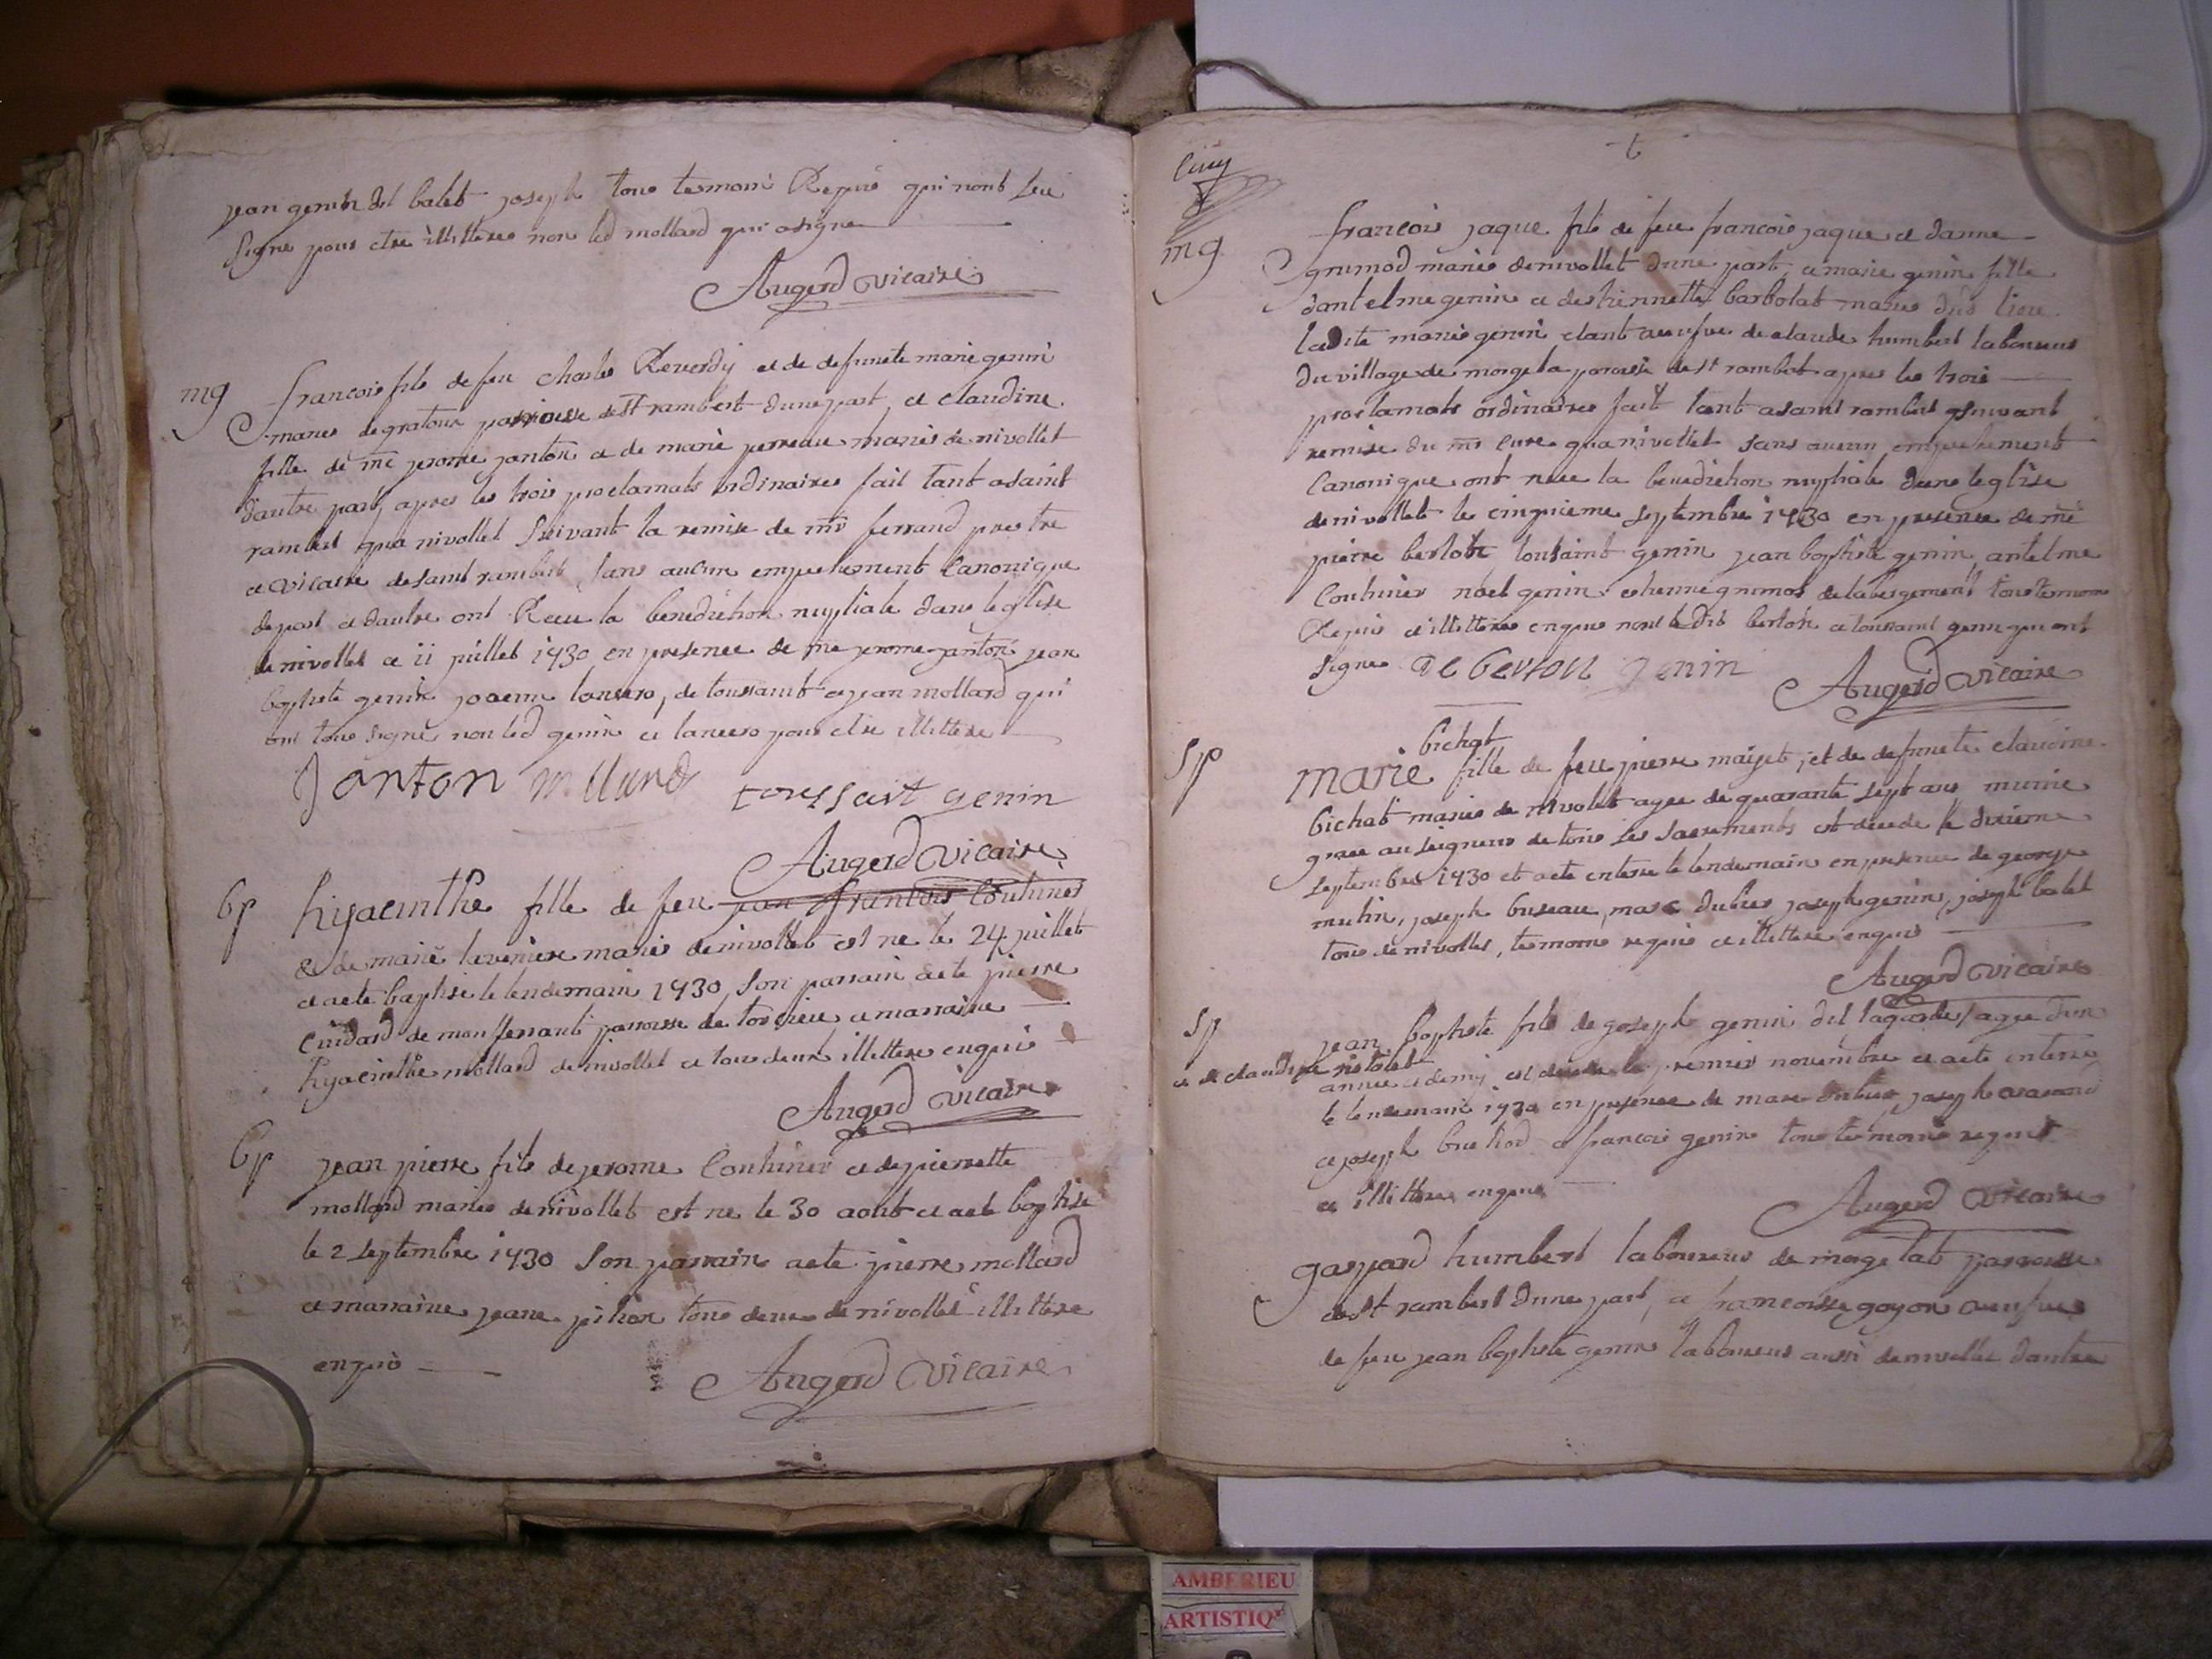 jean genin dit balet joseph tous temoins Requis qui nont sceu
signe pour etre illittere non led mollard qui a signe
Augerd vicaire
mg francois fils de feu charles Reverdy et de defuncte marie genin
maries de gratoux parroisse de St rambert dune part, et claudine
fille de me jerome janton et de marie perreau maries de nivollet
dautre part, apres les trois proclamats ordinaires fait tant a saint
rambert qua nivollet Suivant la remise de mr ferrand prestre
et vicaire de saint rambert, sans aucun empechement Canonique
de part et dautre ont Receu la benediction nuptiale dans leglise
de nivollet ce 11 juillet 1730 en presence de me jerome janton jean
baptiste genin lancero, de toussaint et jean mollard qui
ont tous signé non led genin et lancero pour etre illittere
Janton mollard toussait genin
Augerd vicaire
bp hyacinthe fille de feu jean francois Couturier
& de marie laverriere maries de nivollet est ne le 24 juillet
et a ete baptise le lendemain 1730, son parrain a ete pierre
Cuidard de monferrant parroisse de torcieu et marraine
hyacinthe mollard de nivollet et tous deux illittere enquis
Augerd vicaire
bp jean pierre fils de jerome Couturier et de pierrette
mollard maries de nivollet est ne le 30 aout et a ete baptise
le 2 septembre 1730 son parrain a ete pierre mollard
et marraine jeane pithion tous deux de nivollet illittere
enquis
Augerd vicaire
mg francois jaque fils de feu francois jaque et danne
grumod maries de nivollet dune part, et marie genin fille
dantelme genin et desthiennette barbolat maries dud lieu
ladite marie genin etant veuefve de claude humbert laboureur
du village de morgela paroisse de st rambert apres les trois
proclamats ordinaires fait tant a saint rambert suivant
remise du mr cure qua nivollet sans aucun empechement
Canonique ont receu la benediction nuptiale dans leglise
de nivollet le cinquieme septembre 1730 en presence de me
pierre berlioz toussaint genin jean baptiste genin, antelme
Couturier noel genin esthienne grumod de labergement tous temoins
Requis et illittere enquis non ledit et toussaint genin qui ont
signe genin
Augerd vicaire
sp bichat
marie fille de feu pierre mayet, et de defuncte claudine
bichat maries de nivolet agee de quarante sept ans munie
grace au seigneur de tous les sacrements est decede le dixieme
septembre 1730 et a ete enterre le lendemain en presence de george
mutin, joseph buseau, marc dubier joseph genin, joseph balet
tous de nivollet, temoins requis et illittere enquis
Augerd vicaire
sp jean baptiste fils de joseph genin dit lagarde, agee dun
et de claudine ristolet
annee et demy est decede le premier novembre et a ete enterre
le lendemain 1730 en presence de marc dubier, joseph
et joseph et francois genin tous temoins requis
et illittere enquis
Augerd vicaire
gaspard humbert laboureur de morgelat parroisse
de St rambert dune part, et francoisse goyon veuefve
de feu jean baptiste genin laboureur aussi de nivollet dautre
AMBERIEU
ARTISTIQ